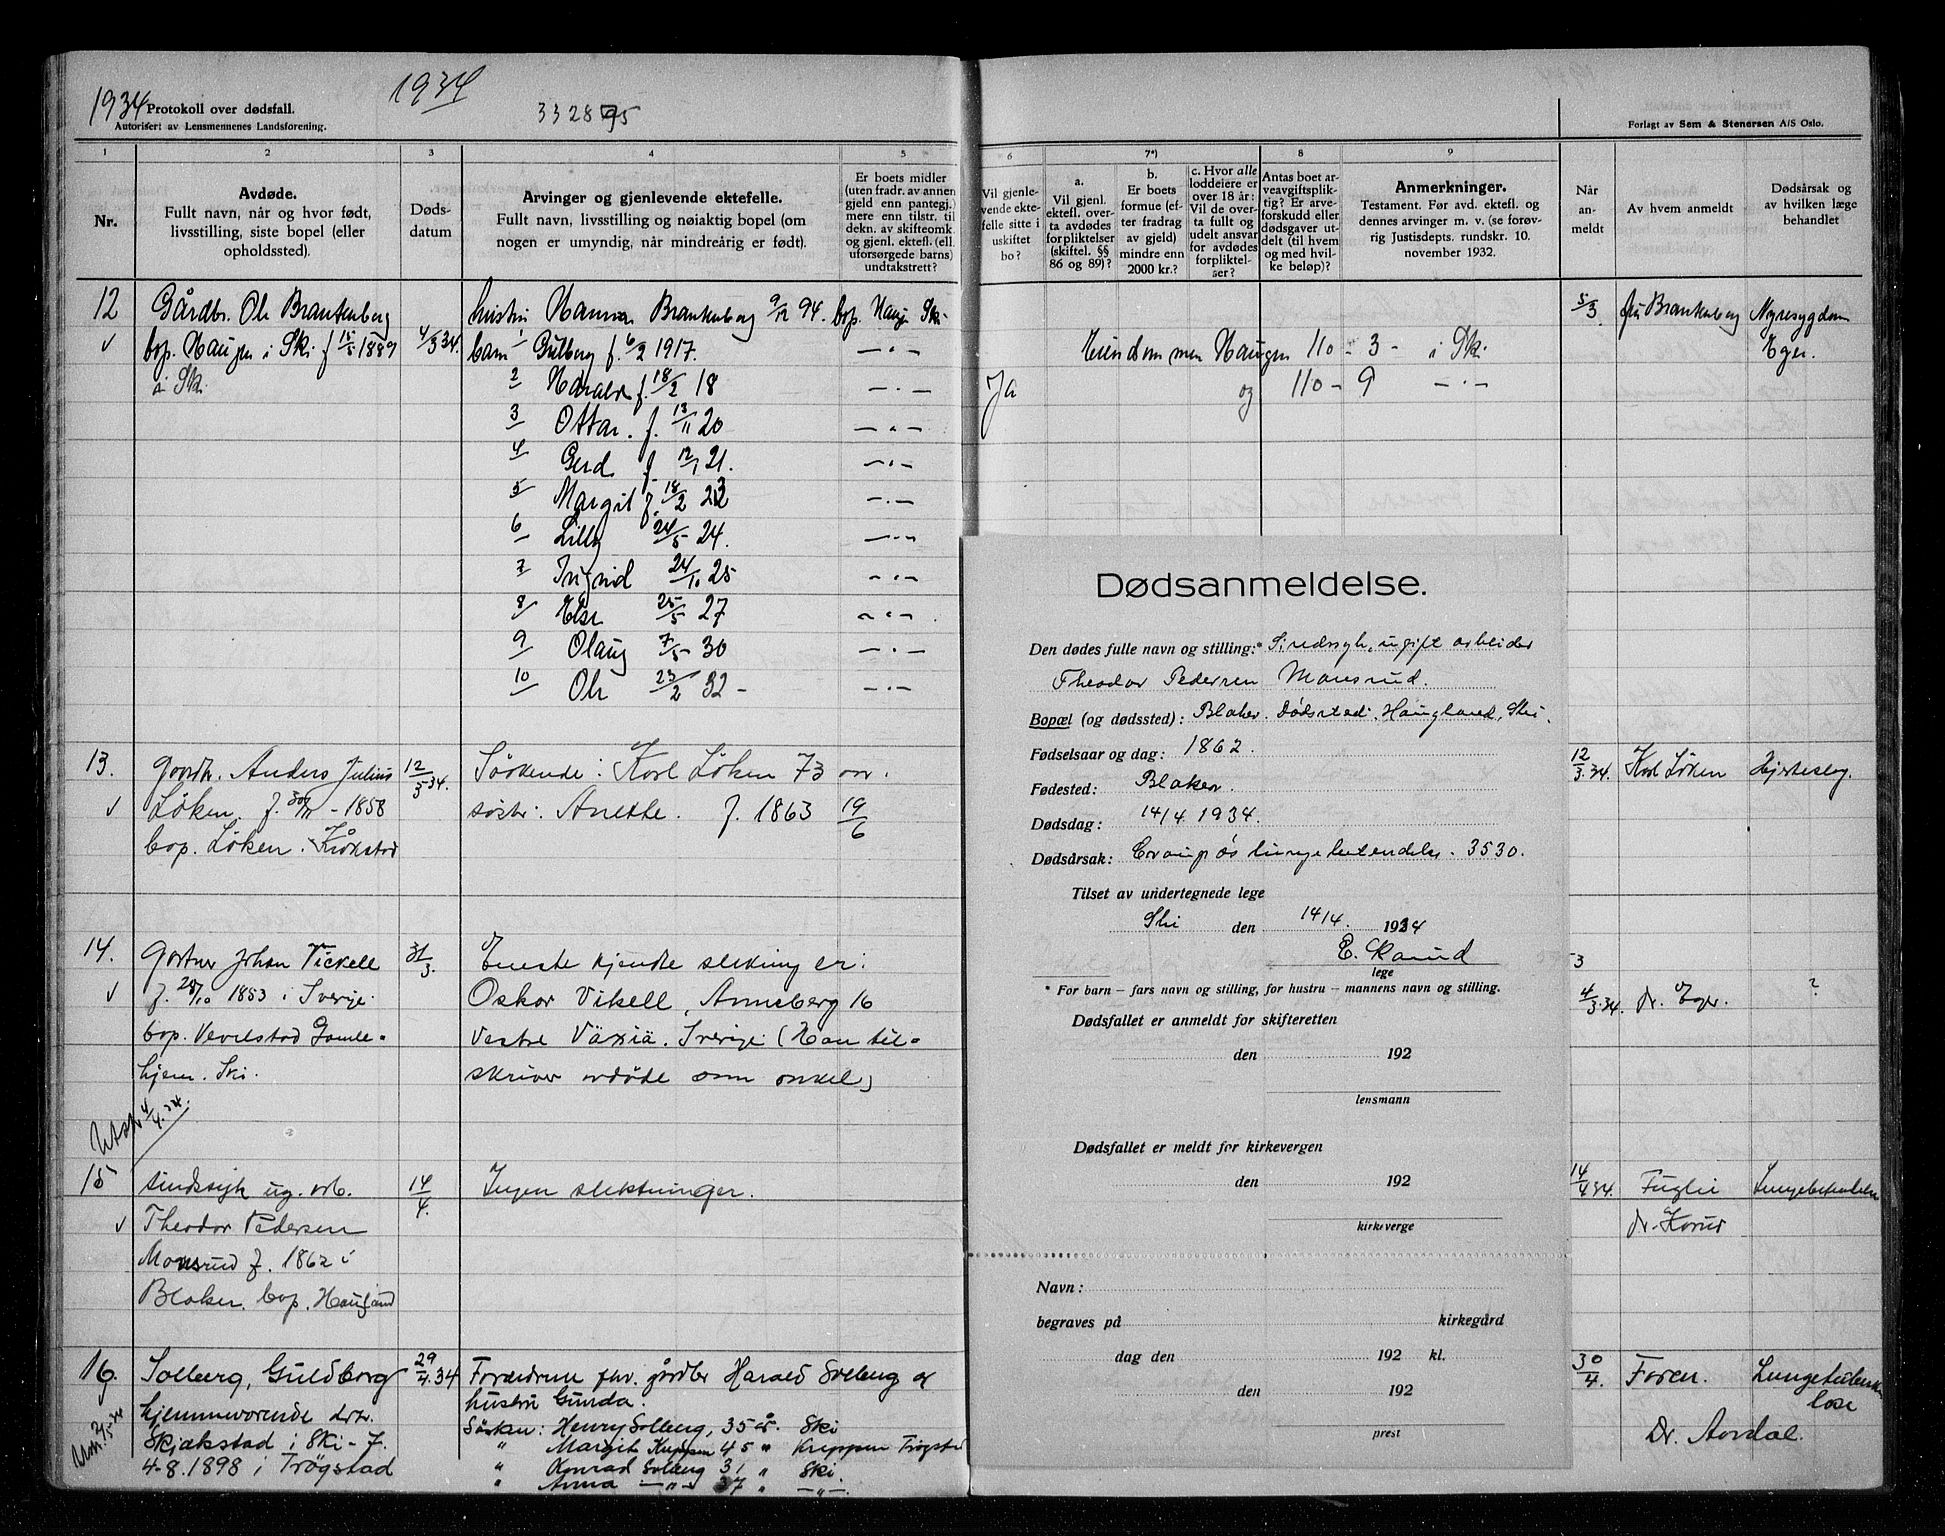 1934 Protokoll over dødsfall.
Autorisert av Lensmennenes Landsforening.
1934
332875
Forlagt av Sem & Stenersen A/S Oslo.
1 2 3 4 5 6 7*) 8 9
Nr.
Avdøde.
Fullt navn, når og hvor født,
livsstilling, siste bopel (eller
opholdssted).
Døds-
datum
Arvinger og gjenlevende ektefelle.
Fullt navn, livsstilling og nøiaktig bopel (om
nogen er umyndig, når mindreårig er født).
Er boets midler
(uten fradr. av annen
gjeld enn pantegj.)
mere enn tilstr. til
dekn. av skifteomk.
og gjenl. ektef. (ell.
uforsørgede barns)
undtakstrett?
Vil gjenle-
vende ekte-
felle sitte i
uskiftet
bo?
a.
Vil gjenl.
ektefl. over-
ta avdødes
forpliktelser
(skiftel. §§
86 og 89)?
b.
Er boets
formue (ef-
ter fradrag
av gjeld)
mindre enn
2000 kr.?
c. Hvor alle
loddeiere er
over 18 år:
Vil de over-
ta fullt og
udelt ansvar
for avdødes
forpliktel-
ser?
Antas boet ar-
veavgiftsplik-
tig? Er arve-
forskudd eller
dødsgaver ut-
delt (til hvem
og med hvil-
ke beløp)?
Anmerkninger.
Testament. Før avd. ektefl. og
dennes arvinger m. v. (se forøv-
rig Justisdepts. rundskr. 10.
november 1932.
Når
an-
meldt
Av hvem anmeldt
Dødsårsak og
av hvilken læge
behandlet
12 Gårdbr. Ole Brantenberg
bop. Haugen i Ski f 15/5 1889
i Ski
4/3 34.
hustru Hanna Brantenberg 9/12 94. bop. Haugen Ski
barn 1 Gulborg f. 6/2 1917. — " —
2 Harald f. 18/2 18 — " —
3 Ottar. f. 13/11 20 — " —
4 Gerd f. 12/1 21. — " —
5 Margit f. 18/2 23 — " —
6 Lilly 24/5 24. — " —
7 Ingrid 24/10 25 — " —
8 Else 25/5 27 — " —
9 Olaug 7/5 30 — " —
10 Ole 23/2 32 — — " —
Ja
Eiendommen Haugen 110 - 3 - i Ski
og 110 - 9 — " —
5/3 fru Brantenberg Nyresygdom
Eger.
13. Gaardbr. Anders Julius
Løken f. 30/11 - 1858
bop. Løken. Kråkstad
12/3 34.
Søskende: Karl Løken 73 aar.
søster: Anette. f. 1863 19/6
12/3.34. Karl Løken Hjerteslag.
14. Gartner Johan Vickell
f. 28/10 1853 i Sverige.
bop. Vevelstad Gamle-
hjem. Ski.
31/3.
Eneste kjendte slektning er:
Oskar Vikell, Anneberg 16
Vestre Växiä. Sverige (Han til-
skriver avdøde som onkel)
3
4/3.34. dr. Eger. ?
Utskr 4/4.34.
15 sindssyk ug. arb.
Theodor Pedersen
Monsrud f. 1862 i
Blaker. bop. Haugland
14/4.
Ingen slektninger.
14/4 34. Fuglei Lungebetendelse
dr. Korud
16 Solberg, Guldborg
hjemmeværende dtr.
Skjækstad i Ski - f.
4-8.1898 i Trøgstad
29/4.34
Forældrene fhv. gårdbr Harald Solberg og
hustru Gunda.
Søsken: Henry Solberg, 35 år. Ski
" Margit Kreppen 45 " Kreppen Trøgstad
" Konrad Solberg 31 " Ski.
" Anna — " — 37 " — " —
30/4. Faren. Lungetuberku-
lose
Dr. Aardal.
Dødsanmeldelse.
Den dødes fulle navn og stilling:* Sindssyk, ugift arbeider
Theodor Pedersen Monsrud.
Bopæl (og dødssted): Blaker. Dødsstad: Haugland, Ski.
Fødselsaar og dag: 1862.
Fødested: Blaker
Dødsdag: 14/4 1934.
Dødsårsak: Croupøs lungebetendelse. 3530.
Tilset av undertegnede lege
Ski den 14/4. 1934
E. Korud
lege
* For barn – fars navn og stilling, for hustru – mannens navn og stilling.
Dødsfallet er anmeldt for skifteretten
den 192
lensmann
Dødsfallet er meldt for kirkevergen
den 192
kirkeverge
Navn:
begraves på kirkegård
dag den 192 kl.
den 192
prest